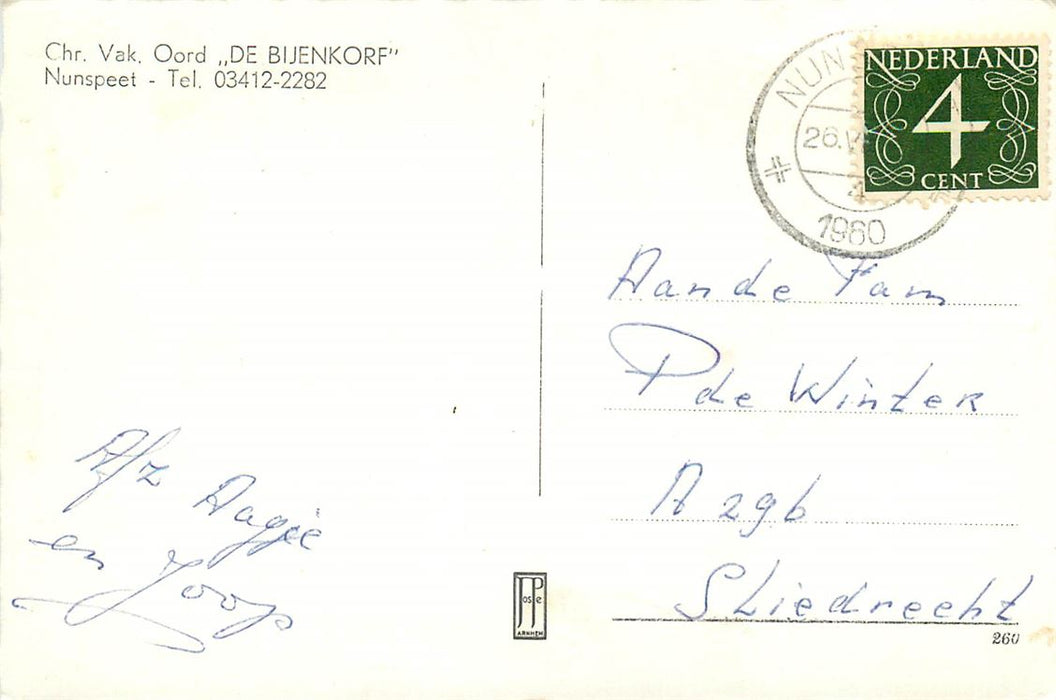 Chr. Vak. Oord „DE BIJENKORF"
Nunspeet - Tel. 03412-2282
NEDERLAND
4
CENT
NUN
26.VI
1960
Aan de Fam
P de Winter
A 29b
Sliedrecht
Afz Aagje
en Joop
JosPe
ARNHEM
260